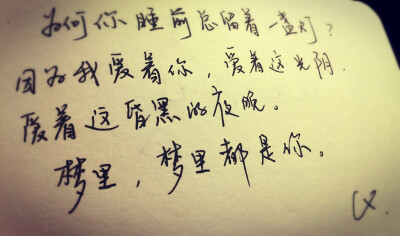 为何你睡前总留着一盏灯？
因为我爱着你，爱着这光阴.
爱着这昏黑的夜晚。
梦里，梦里都是你。